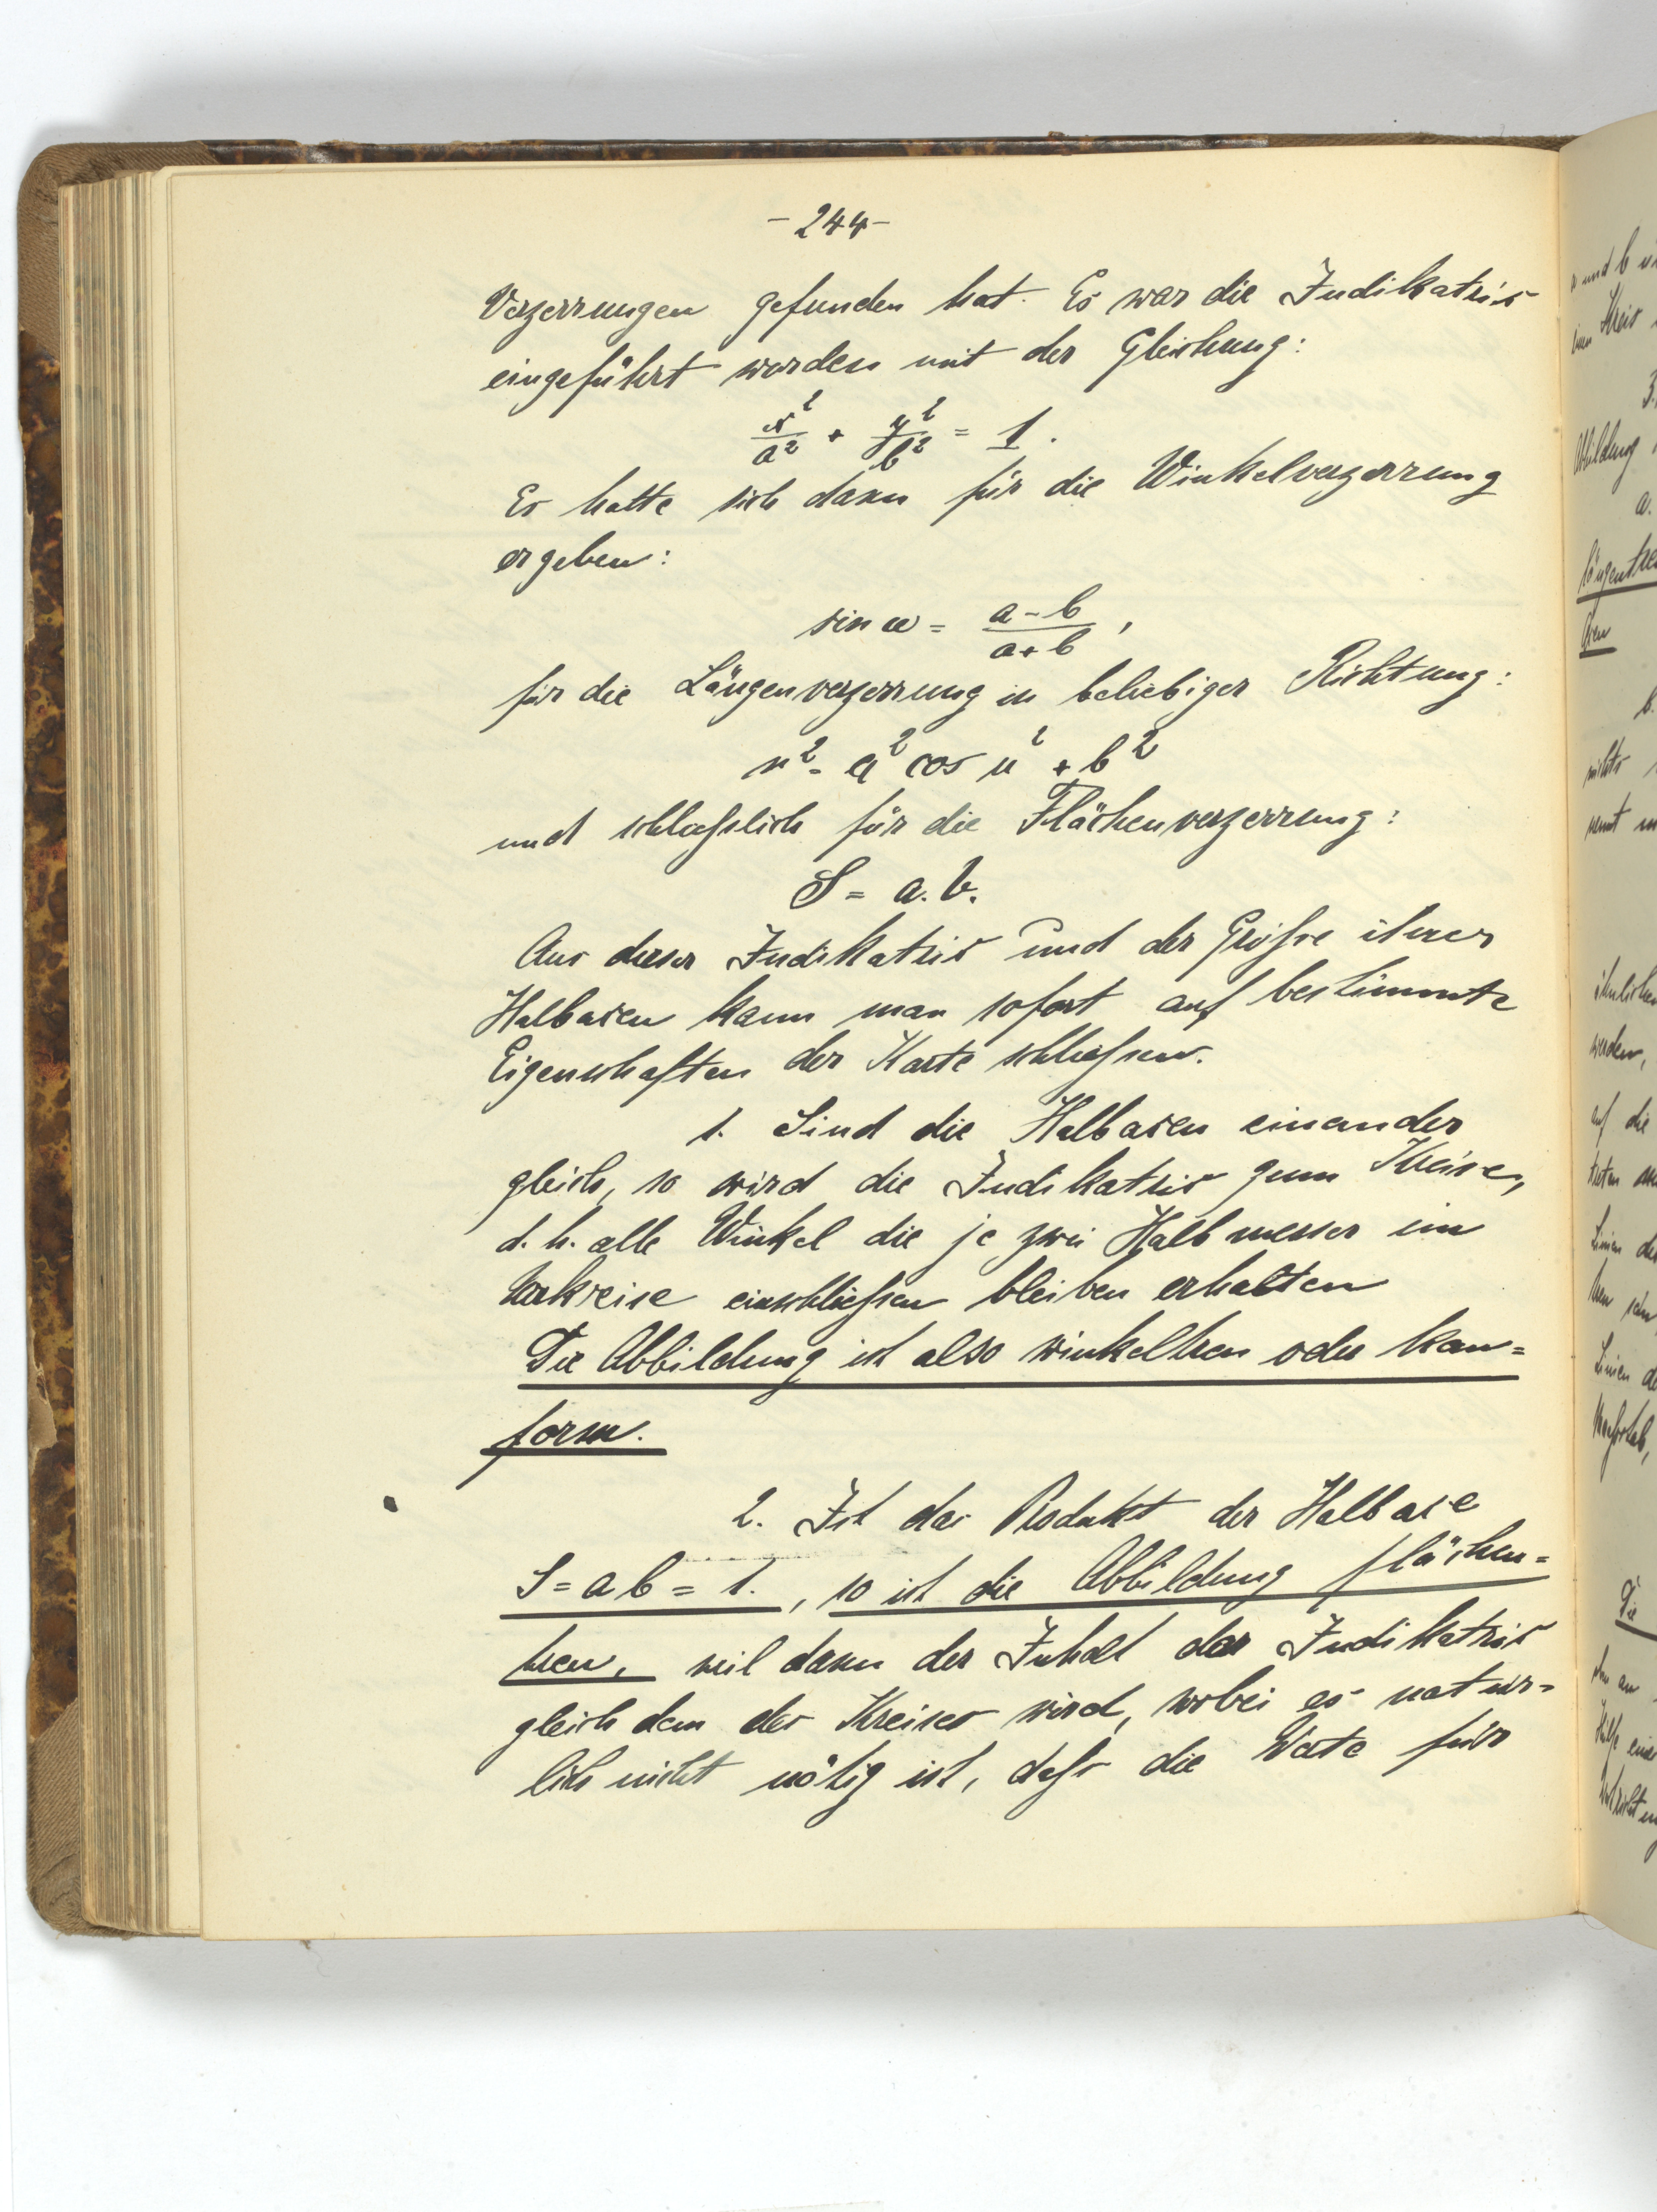 - 244 -
Verzerrungen gefunden hat. Es war die Indikatrix
eingeführt worden mit der Gleichung:
x²/a² + y²/b² = 1.
Es hatte sich dann für die Winkelverzerrung
ergeben:
sin ω = (a - b)/(a + b),
für die Längenverzerrung in beliebiger Richtung:
r² = a² cos u² + b²
und schließlich für die Flächenverzerrung:
S = a. b.
Aus dieser Indikatrix und der Größe ihrer
Halbaxen kann man sofort auf bestimmte
Eigenschaften der Karte schließen.
1. Sind die Halbaxen einander
gleich, so wird die Indikatrix zum Kreise,
d. h. alle Winkel die je zwei Halbmesser im
Urkreise einschließen bleiben erhalten
Die Abbildung ist also winkeltreu oder kon=
form.
2. Ist das Produkt der Halbaxe
S = a b = 1. , so ist die Abbildung flächen=
treu, weil dann der Inhalt der Indikatrix
gleich dem des Kreises wird, wobei es natür=
lich nicht nötig ist, daß die Werte für
a und b
Kreis
3.
Abbildung
a.
längentreu
b.
nichts
nennt
werden,
auf die
Linien
Linien
Die